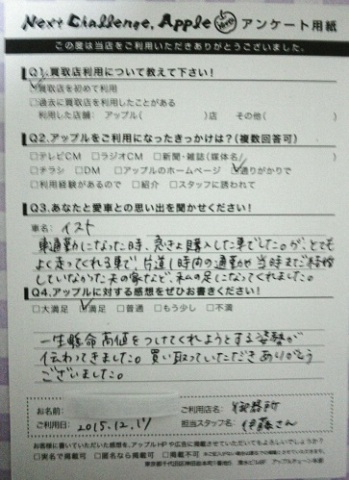 Next Challenge, Apple アンケート用紙
この度は当店をご利用いただきありがとうございました。
Q1.買取店利用について教えて下さい!
□買取店を初めて利用
□過去に買取店を利用したことがある
利用した店舗: アップル( )店 その他( )
Q2.アップルをご利用になったきっかけは?(複数回答可)
□テレビCM □ラジオCM □新聞・雑誌(媒体名 )
□チラシ □DM □アップルのホームページ □通りがかりで
□利用経験があるので □紹介 □スタッフに誘われて
Q3.あなたと愛車との思い出を聞かせください!
車名: イスト
車通勤になった時、急きょ購入した車でした。が、とても
よく走ってくれる車で、片道1時間の通勤や当時まだ結婚
していなかった夫の家など、私の足になってくれました。
Q4.アップルに対する感想をぜひお書きください!
□大満足 □満足 □普通 □もう少し □不満
一生懸命高値をつけてくれようとする姿勢が
伝わってきました。買い取っていただきありがとう
ございました。
お名前:
ご利用店名:
ご利用日: 2015.12.17
担当スタッフ名: 伊藤さん
お客様に書いていただいた感想を、アップルHPや広告に掲載させていただいてもよろしいでしょうか?
□実名で掲載可 □匿名なら掲載可 □掲載不可